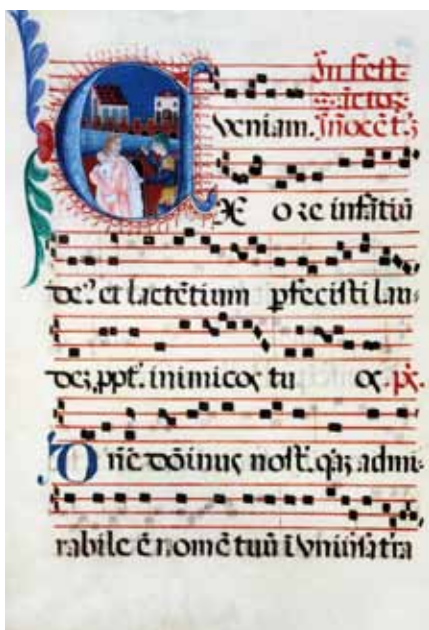 In fest.
veniam. Innocēt.
EX oꝛe infātiū
de⁹ et lactētium pfecisti lau
deʒ ppt. inimicoꝝ tu oꝝ. ps̄.
Dn̄e dōinus nost. qāʒ admi
rabile ē nomē tuū ī vniūsa tr̄a